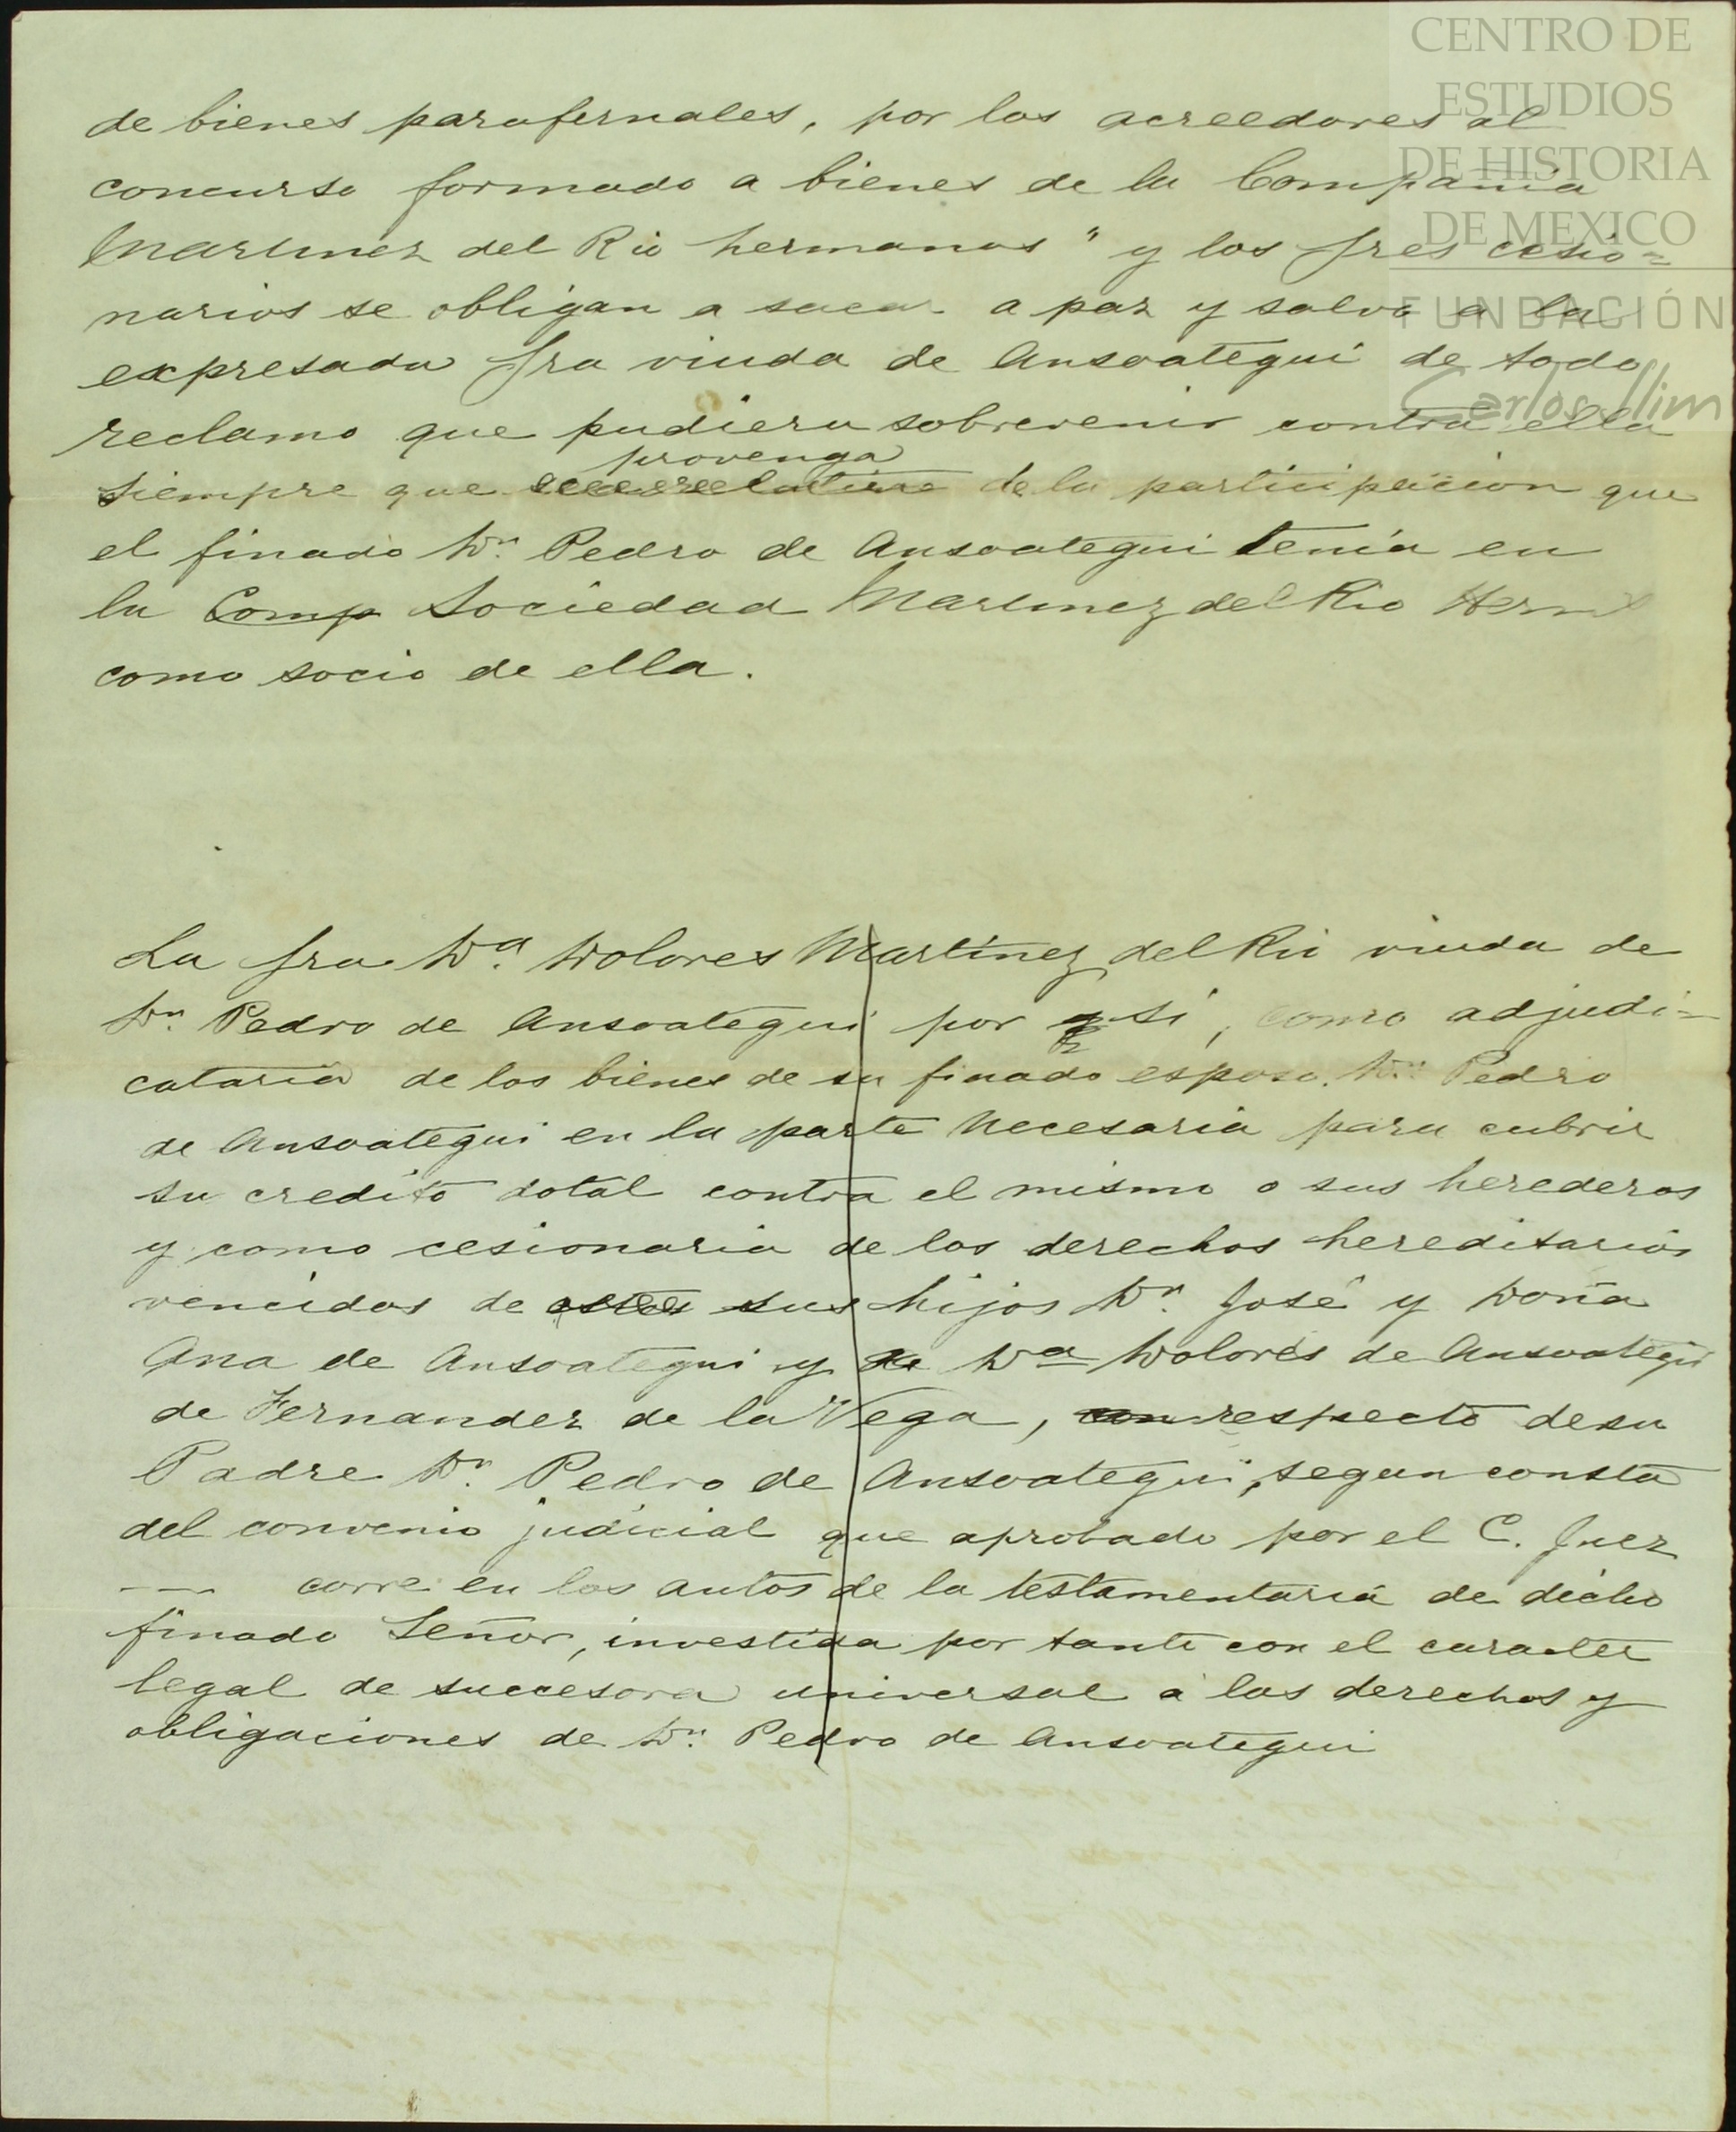 CENTRO DE
ESTUDIOS
DE HISTORIA
DE MEXICO
FUNDACIÓN
Carlos Slim
de bienes parafernales, por los acreedores al
concurso formado a bienes de la Compania
Martinez del Rio hermanos" y los Sres cesio=
narios se obligan a sacar a paz y salvo a la
expresada Sra viuda de Ansoategui de todo
reclamo que pudiera sobrevenir contra ella
provenga
siempre que de la participacion que
el finado Dn. Pedro de Ansoategui tenia en
la Comp Sociedad Martinez del Rio Herms
como socio de ella.
La Sra Da. Dolores Martinez del Rio viuda de
Dn. Pedro de Ansoategui por si, como adjudi=
cataria de los bienes de su finado esposo Dn. Pedro
de Ansoategui en la parte necesaria para cubrir
su credito dotal contra el mismo o sus herederos
y como cesionaria de los derechos hereditarios
vencidos de estos sus hijos Dn. José y Doña
Ana de Ansoategui y de Da Dolores de Ansoategui
de Fernandez de la Vega, con respecto de su
Padre Dn. Pedro de Ansoategui, segun consta
del convenio judicial que aprobado por el C. Juez
--- corre en los autos de la testamentaria de dicho
finado Señor, investida por tanto con el caracter
legal de succesora universal a los derechos y
obligaciones de Dn. Pedro de Ansoategui